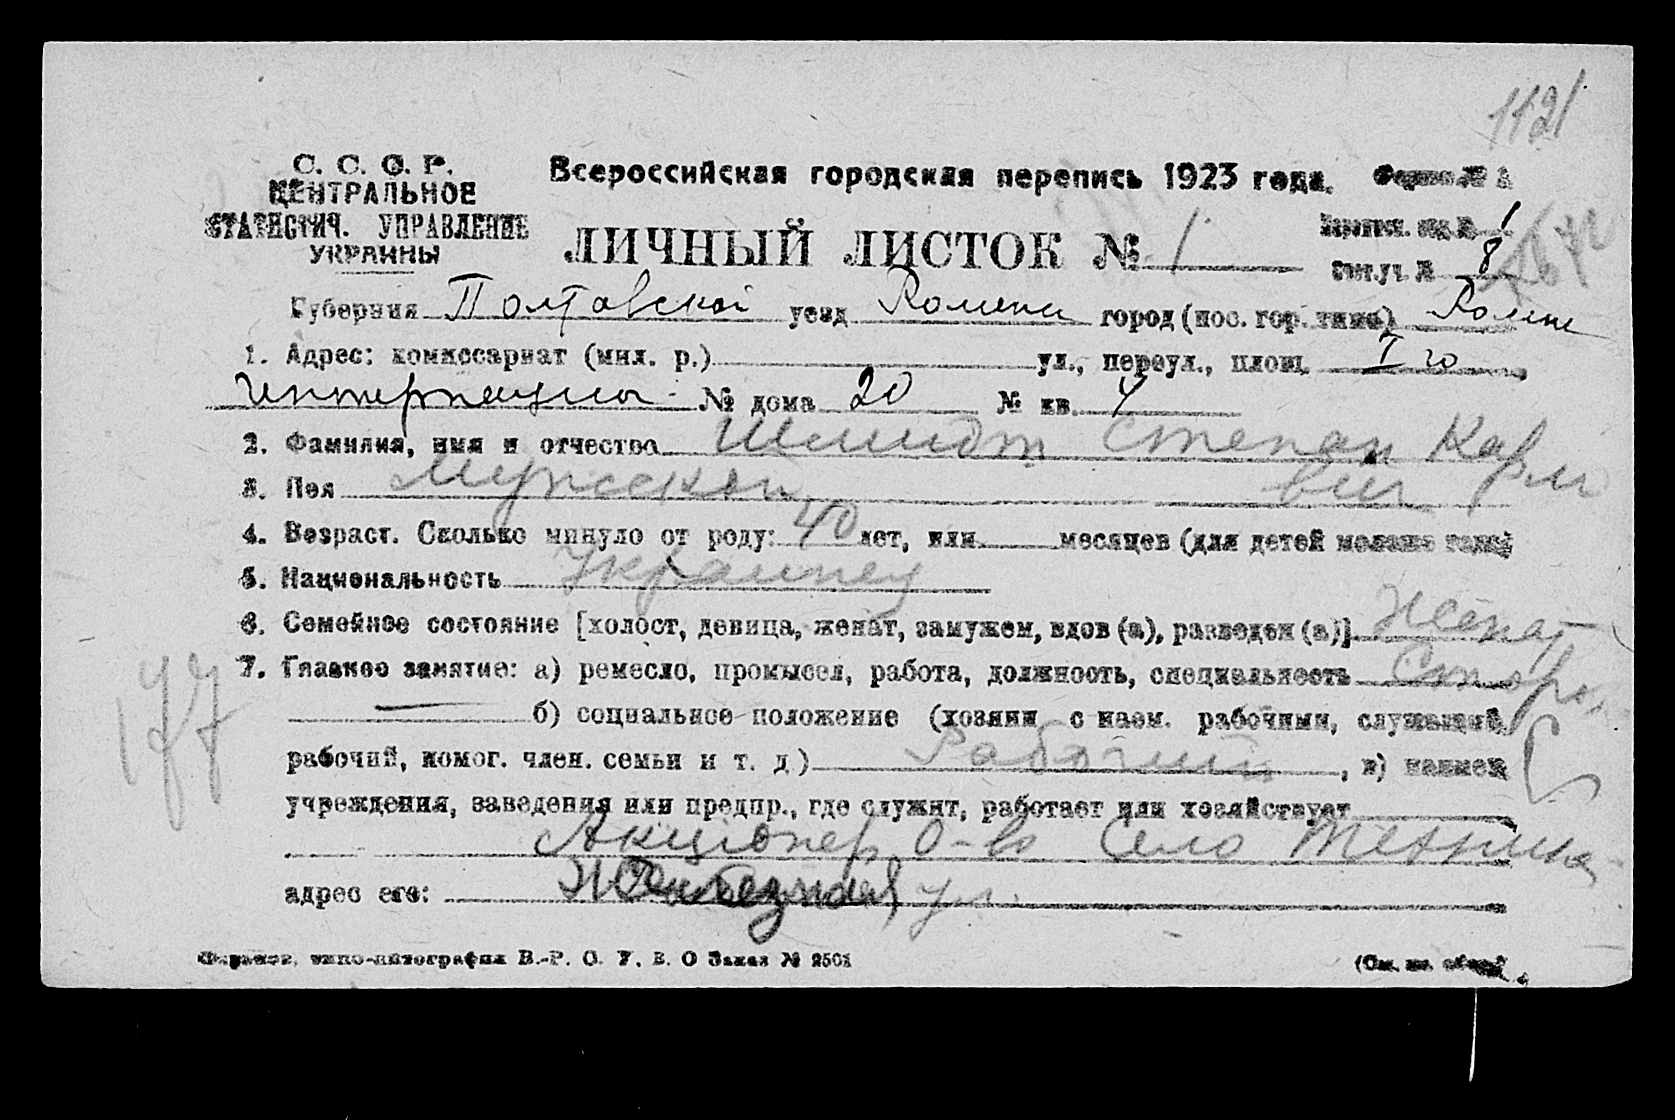 1121
С. С. С. Р.
ЦЕНТРАЛЬНОЕ
СТАТИСТИЧ. УПРАВЛЕНИЕ
УКРАИНЫ
Всероссийская городская перепись 1923 года. Форма № А
ЛИЧНЫЙ ЛИСТОК № 1
отд. № 1
Сч. уч. № 8
Губерния Полтавской уезд Ромени город (пос. гор. типа) Ромни
1. Адрес: комиссариат (мил. р.) ул., переул., площ. I го
Интернацила № дома 20 № кв. 4
2. Фамилия, имя и отчество Шмидт Степан Карло
вич
3. Пол Мужской
4. Возраст. Сколько минуло от роду: 40 лет, или месяцев (для детей моложе года)
5. Национальность Украинец
6. Семейное состояние [холост, девица, женат, замужем, вдов (а), разведен (а)] Женат
7. Главное занятие: а) ремесло, промысел, работа, должность, специальность Сторож
— б) социальное положение (хозяин с наем. рабочими, служащий,
рабочий, помог. член. семьи и т. д.) Рабочий, в) наимен.
учреждения, заведения или предпр., где служит, работает или хозяйствует
Акціонер О-во Село Техника
адрес его: ул.
177
типо-литография В.-Р. О. У. В. О Заказ № 2501
(См. на обор.)